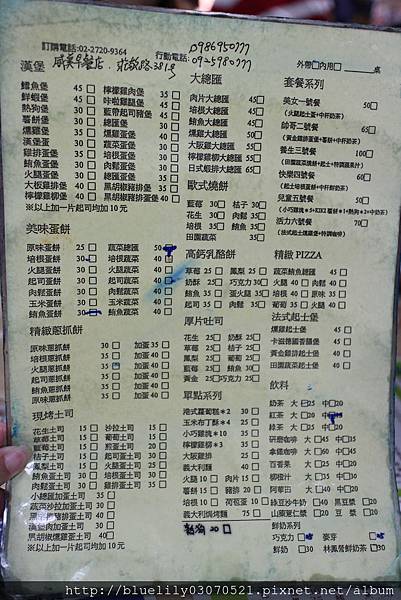 訂購電話:02-2720-9364
行動電話:
0986950777
0925980777
咸美早餐店.莊敬路381号
外帶□內用□ 桌
漢堡
鱈魚堡 45□
鮮蝦堡 45□
熱狗堡 30□
薯餅堡 30□
燻雞堡 30□
漢堡蛋 30□
雞排蛋堡 50□
鮪魚蛋堡 30□
火腿蛋堡 30□
大板雞排堡 40□
雞柳蛋堡 40□
檸檬雞肉堡 35□
咔啦雞腿堡 50□
藍帶起司豬堡 45□
豬肉蛋堡
燻雞蛋堡 40□
蔬菜蛋堡 30□
培根蛋堡 30□
肉鬆蛋堡 30□
總匯蛋堡 35□
黑胡椒豬排蛋堡 35□
黑胡椒雞排蛋堡 35□
※以上加一片起司均加 10 元
大總匯
肉片大總匯 45□
培根大總匯 45□
鮪魚大總匯 50□
燻雞大總匯 50□
大阪雞大總匯 50□
檸檬雞柳大總匯 50□
日式蝦排大總匯 60□
歐式燒餅
藍莓 30□ 桔子 30□
花生 30□ 肉鬆 35□
培根 35□ 鮪魚 35□
田園蔬菜 35□
套餐系列
美女一號餐 50□
(火腿起士蛋+中杯奶茶)
帥哥二號餐 65□
(黃金雞排蛋堡+薯餅+中杯奶茶)
養生三號餐 100□
(田園蔬菜燒餅+起士+特調蔬果汁)
快樂四號餐 60□
(起士培根蛋餅+中杯鮮奶茶)
兒童五號餐 50□
(小巧雞塊*5+KIKI薯餅*1+熱狗*2+中奶茶)
活力六號餐 70□
(法式起士燻雞堡+特調咖啡)
美味蛋餅
原味蛋餅 25 □
培根蛋餅 30
火腿蛋餅 30 □
起司蛋餅 30 □
肉鬆蛋餅 30 □
玉米蛋餅 30 □
鮪魚蛋餅 30
蔬菜總匯 50
培根蔬菜 40□
火腿蔬菜 40□
起司蔬菜 40□
肉鬆蔬菜 40□
玉米蔬菜 40□
鮪魚蔬菜 40□
高鈣乳酪餅
草莓 25 □ 鳳梨 25 □ 蔬菜 30□
奶酥 25 □ 巧克力 30□ 肉鬆 40□
鮪魚 35 □ 蛋火腿 35□ 培根 40□
起司 35□ 肉鬆 35□ 葡萄 35 □
精緻 PIZZA
蔬菜鮪魚總匯 40□
小披薩 40□ 夏威夷 40□
培根 40□ 原味 35□
火腿 40□
精緻蔥抓餅
原味蔥抓餅 30 □ 加蛋 35 □
培根蔥抓餅 35 □ 加蛋 40 □
火腿蔥抓餅 35 □ 加蛋 40 □
起司蔥抓餅 35 □ 加蛋 40 □
肉鬆蔥抓餅 35 □ 加蛋 40 □
鮪魚蔥抓餅 35 □ 加蛋 40 □
厚片吐司
花生 25 □ 奶酥 25□
草莓 25 □ 桔子 25□
鳳梨 25 □ 葡萄 25□
藍莓 25 □ 蒜味 25□
黃金 25 □巧克力 25□
法式起士堡
燻雞起士堡 45□
卡滋德國香腸堡 45□
黃金雞排起士堡 45□
田園蔬菜起士堡 40□
飲料
奶茶 大□25中□20
紅茶 大□20中15
綠茶 大□20中□15
研磨咖啡 大□45中□35
拿鐵咖啡 大□60中□50
百香果 大□25中□20
柳橙汁 大□35中□30
阿華田 大□40中□30
綠豆沙牛奶 40□ 黑豆漿 □20
山療薏仁漿 □20 豆漿 □20
鮮奶系列
巧克力 □ 麥芽 □40
鮮奶 □30 林鳳營鮮奶茶 □40
現烤土司
花生土司 15□
草莓土司 15□
葡萄土司 15□
桔子土司 15□
鳳梨土司 15□
肉鬆蛋土司 30□
培根蛋土司 30□
鮪魚蛋土司 30□
沙拉土司 20□
奶酥土司 20□
煎蛋土司 20□
起司蛋土司 30□
火腿蛋土司 25□
燻雞蛋土司 35□
豬排蛋土司 30□
小總匯加蛋土司 35□
蔬菜沙拉加蛋土司 30□
黑胡椒豬排蛋土司 35□
漢堡肉加蛋土司 30□
黑胡椒燻雞蛋土司 35□
※以上加一片起司均加 10 元
單點系列
港式蘿蔔糕*2 30□
玉米布丁酥*4 30□
小巧雞塊*10 35□
檸檬雞柳*3 35□
大阪雞排 35□
義大利麵 40□
火腿 10□ 肉片 15□
薯餅 15□ 豬排 20□
培根 10□ 荷包蛋 10□
義大利焗烤麵 75□
熱狗 20 □
http://bluelily03070521.pixnet.net/album